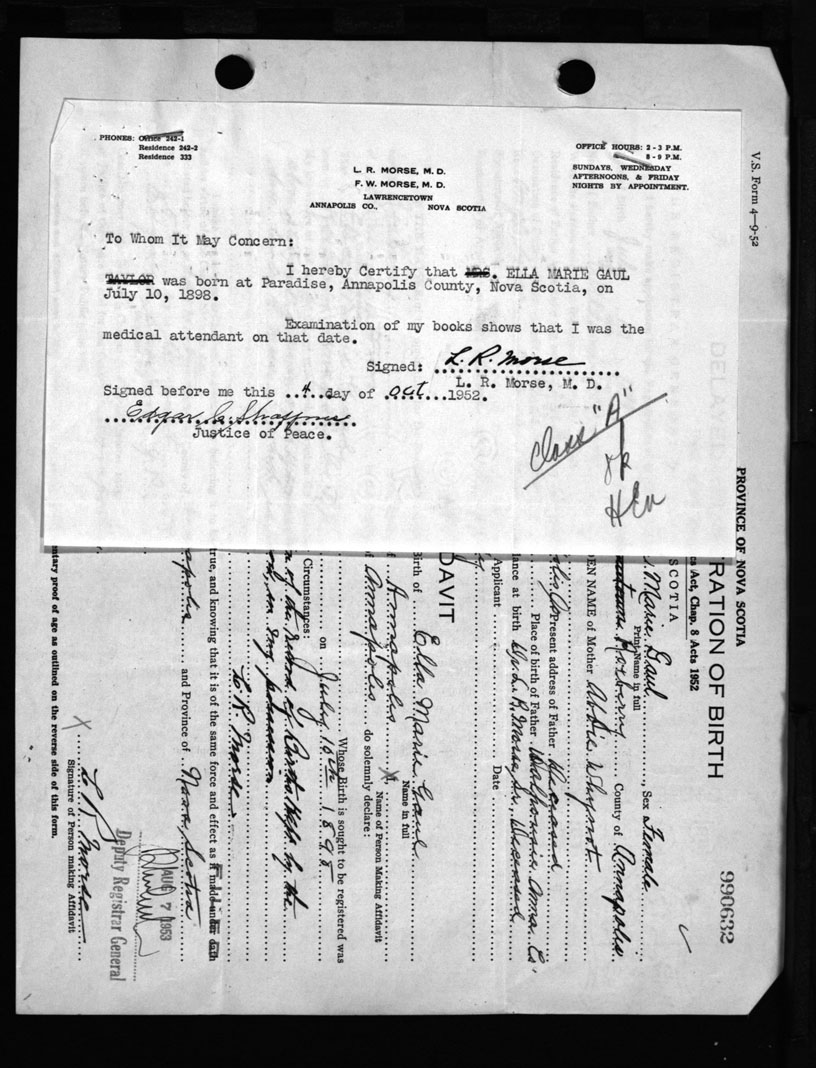 PHONES: Office 242-1
Residence 242-2
Residence 333
OFFICE HOURS: 2 - 3 P.M.
8 - 9 P.M.
SUNDAYS, WEDNESDAY
AFTERNOONS, & FRIDAY
NIGHTS BY APPOINTMENT.
L. R. MORSE, M. D.
F. W. MORSE, M. D.
LAWRENCETOWN
ANNAPOLIS CO., NOVA SCOTIA
To Whom It May Concern:
I hereby Certify that MRS. ELLA MARIE GAUL
TAYLOR was born at Paradise, Annapolis County, Nova Scotia, on
July 10, 1898.
Examination of my books shows that I was the
medical attendant on that date.
Signed: L. R. Morse
L. R. Morse, M. D.
Signed before me this 4 day of Oct 1952.
Edgar
Justice of Peace.
Class "A"
V.S. Form 4-9-52
PROVINCE OF NOVA SCOTIA
RATION OF BIRTH
990632
ns Act, Chap. 8 Acts 1952
SCOTIA
Marie Gaul, Sex Female
Print Name in full
County of Annapolis
DEN NAME of Mother Abbie
Present address of Father Deceased
Place of birth of Father Dalhousie Anna. Co.
dance at birth Dr. L. R. Morse, Sr. Deceased
Applicant Date
DAVIT
Birth of Ella Marie Gaul
Name in full
Annapolis X
Name of Person Making Affidavit
of Annapolis do solemnly declare:
Whose Birth is sought to be registered was
on July 10th 1898
Circumstances:
n of the record of Births kept by the
in my possession
L. R. Morse
true, and knowing that it is of the same force and effect as if made under oath
apolis and Province of Nova Scotia
X L R Morse
Signature of Person making Affidavit
AUG 7 1953
Deputy Registrar General
entary proof of age as outlined on the reverse side of this form.